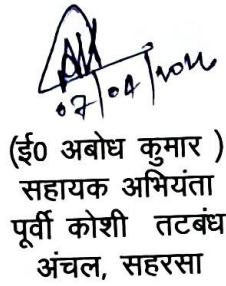 07/04/2022
(ई0 अबोध कुमार )
सहायक अभियंता
पूर्वी कोशी तटबंध
अंचल, सहरसा